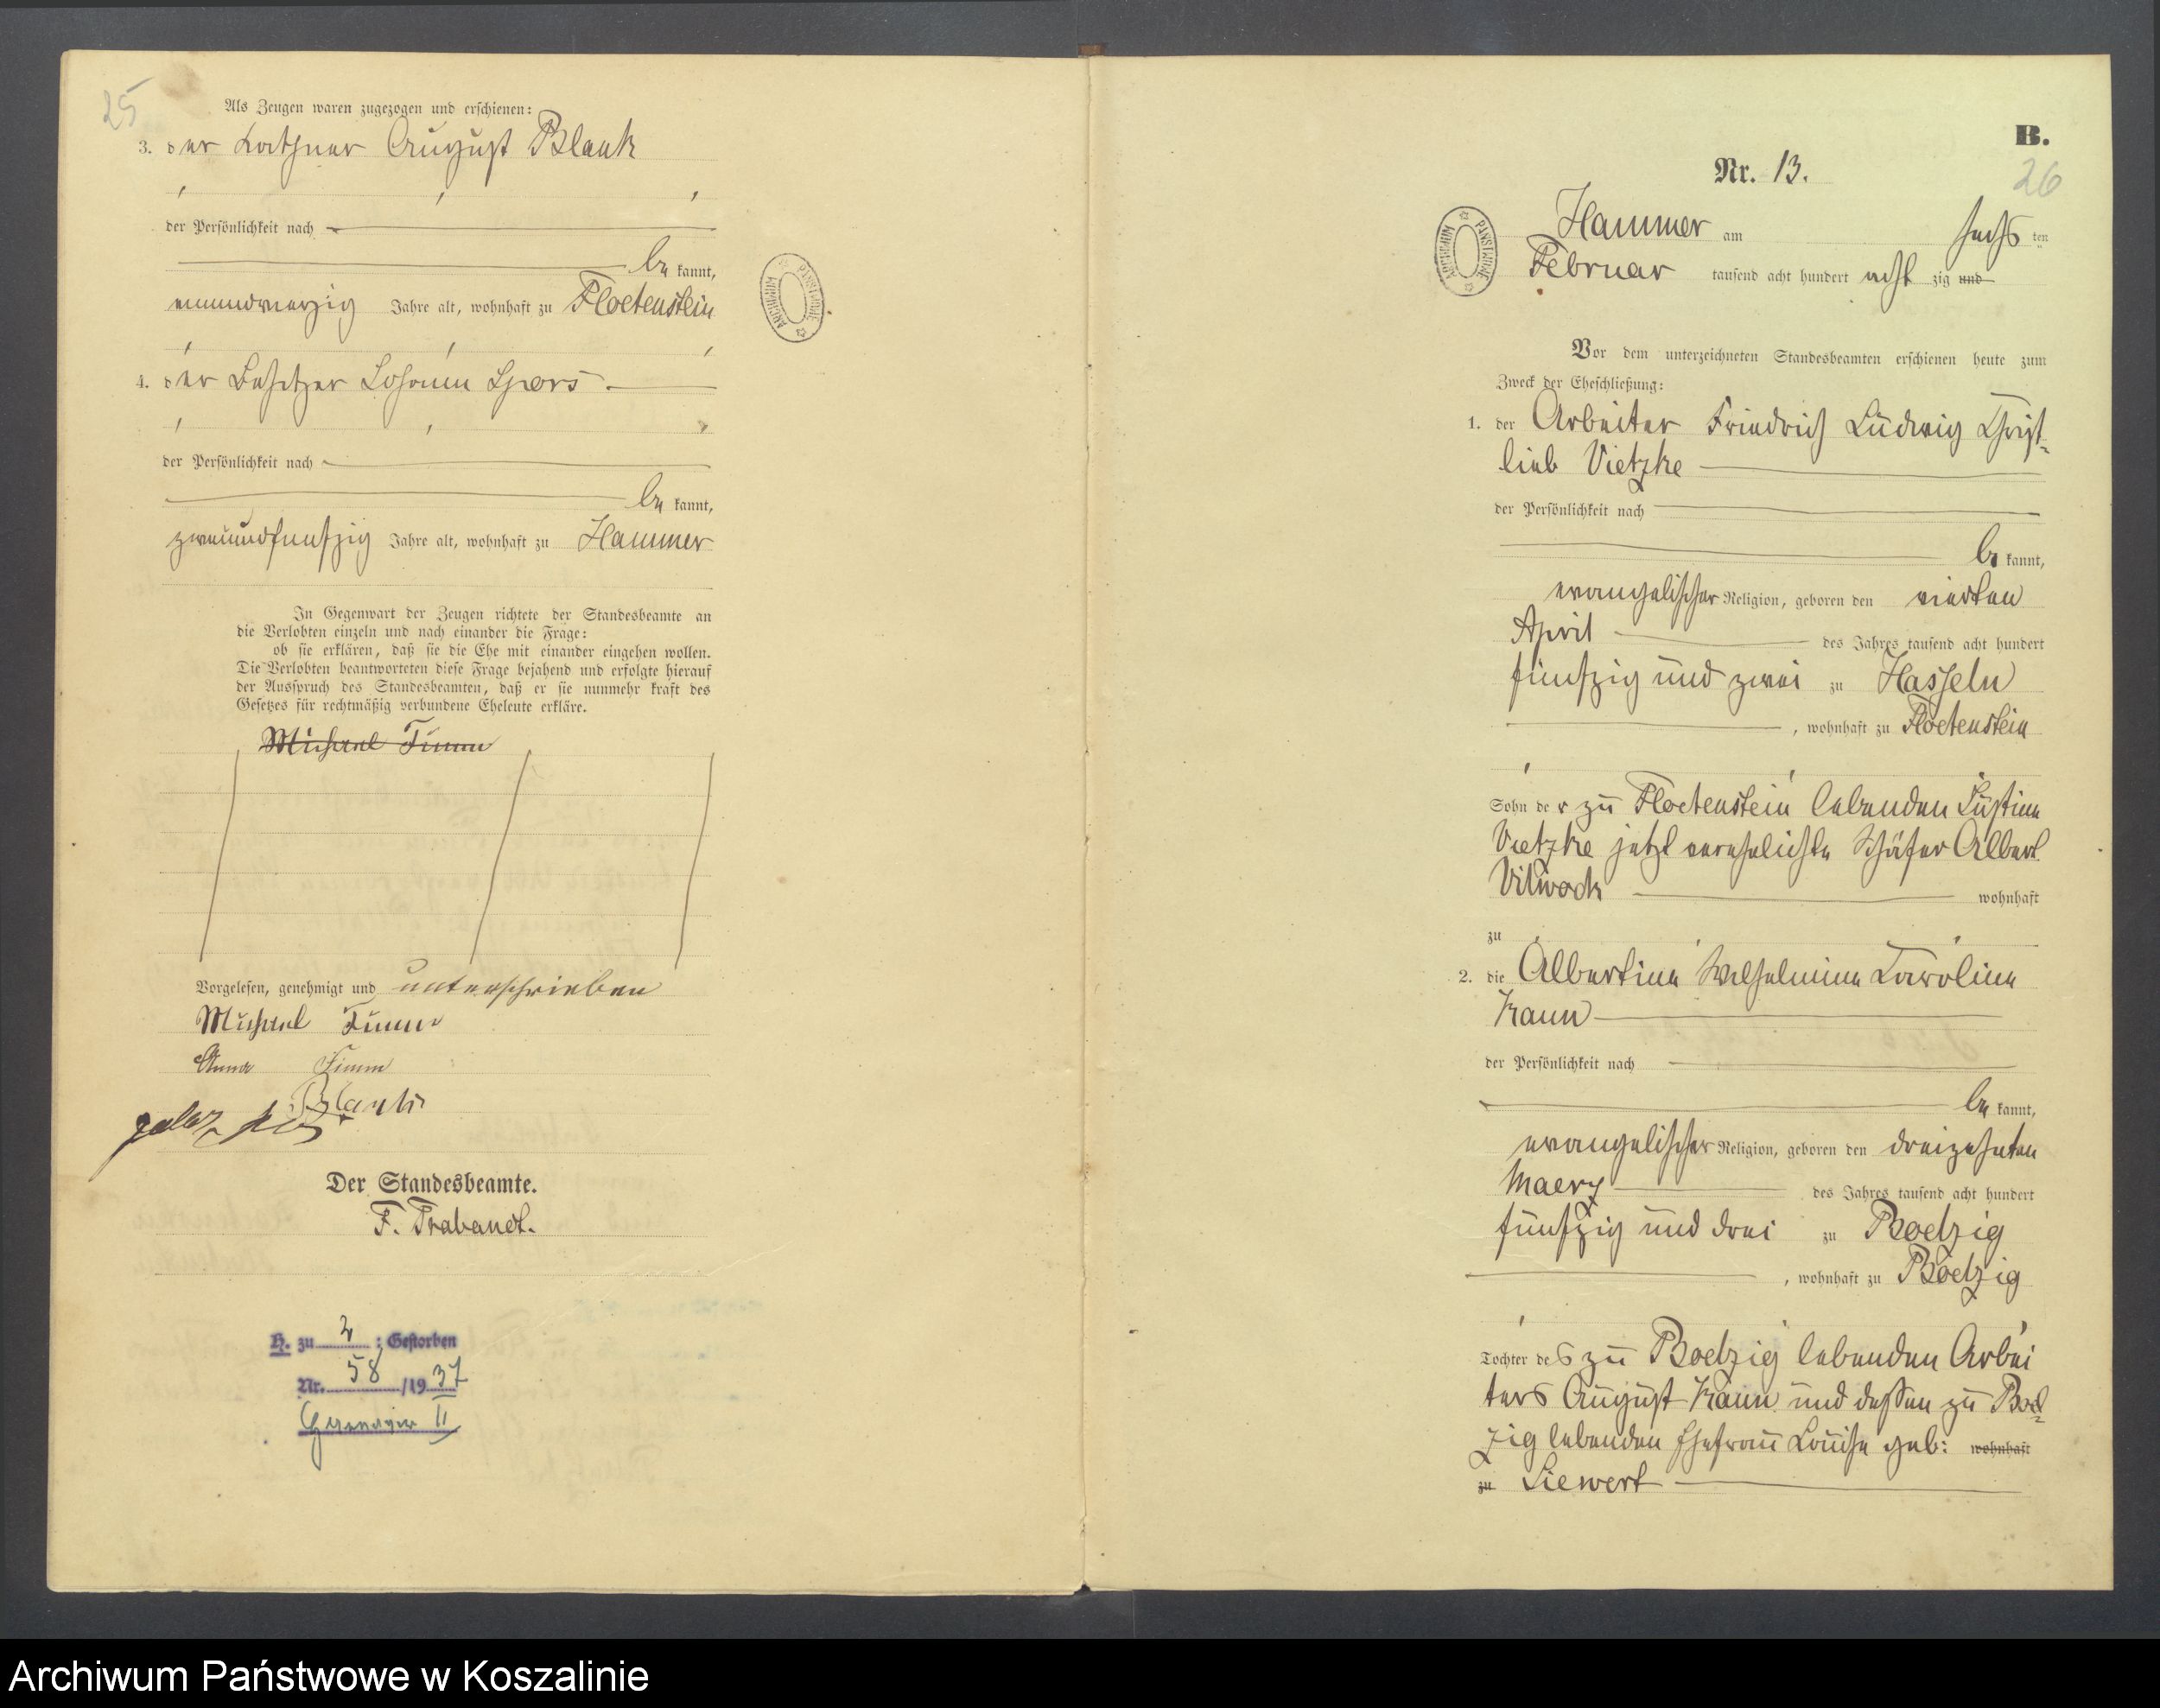 25
Als Zeugen waren zugezogen und erschienen:
3. der Kathner August Blank
der Persönlichkeit nach
be kannt,
einundvierzig Jahre alt, wohnhaft zu Floetenstein
4. der Besitzer Johann Spors
der Persönlichkeit nach
be kannt,
zweiundfunfzig Jahre alt, wohnhaft zu Hammer
In Gegenwart der Zeugen richtete der Standesbeamte an
die Verlobten einzeln und nach einander die Frage:
ob sie erklären, daß sie die Ehe mit einander eingehen wollen.
Die Verlobten beantworteten diese Frage bejahend und erfolgte hierauf
der Ausspruch des Standesbeamten, daß er sie nunmehr kraft des
Gesetzes für rechtmäßig verbundene Eheleute erkläre.
Michael Timm
Vorgelesen, genehmigt und unterschrieben
Michael Timm
Anna Timm
Blank
Der Standesbeamte.
F. Trabandt.
H. zu 2 : Gestorben
Nr. 58 /1937
II
B.
Nr. 13.
26
Hammer am sechs ten
Februar tausend acht hundert acht zig und
Vor dem unterzeichneten Standesbeamten erschienen heute zum
Zweck der Eheschließung:
1. der Arbeiter Friedrich Ludwig Christ-
lieb Vietzke
der Persönlichkeit nach
be kannt,
evangelischer Religion, geboren den vierten
April des Jahres tausend acht hundert
funfzig und zwei zu Hasseln
, wohnhaft zu Floetenstein
Sohn der zu Floetenstein lebenden Justine
Vietzke jetzt verehelichte Schäfer Albert
wohnhaft
zu
2. die Albertine Wilhelmine Caroline
Kann
der Persönlichkeit nach
be kannt,
evangelischer Religion, geboren den dreizehnten
Maerz des Jahres tausend acht hundert
funfzig und drei zu Boelzig
, wohnhaft zu Boelzig
Tochter des zu Boelzig lebenden Arbei
ters August Kann und dessen zu Boel-
zig lebenden Ehefrau Louise geb: wohnhaft
zu Siewert
ARCHIWUM PAŃSTWOWE
ARCHIWUM PAŃSTWOWE
Archiwum Państwowe w Koszalinie